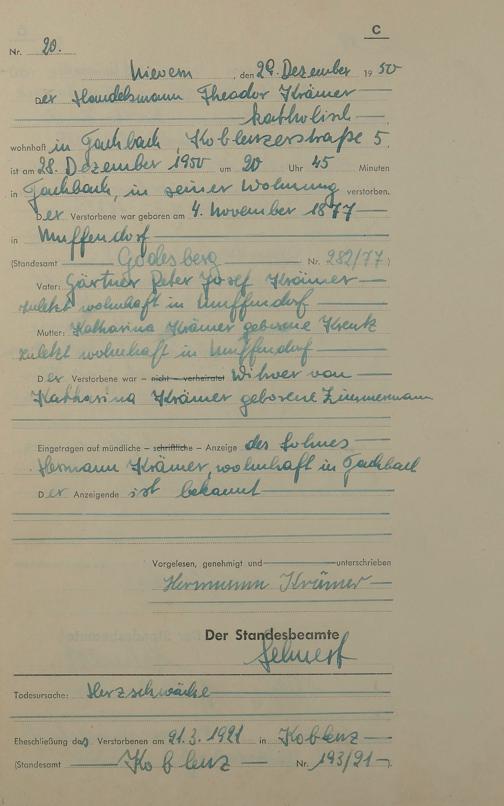 C
Nr. 20.
Nievern, den 29. Dezember 1950
Der Handelsmann Theodor Krämer
katholisch
wohnhaft in Fachbach, Koblenzerstraße 5,
ist am 28. Dezember 1950 um 20 Uhr 45 Minuten
in Fachbach, in seiner Wohnung verstorben.
Der Verstorbene war geboren am 4. November 1877
in Muffendorf
(Standesamt Godesberg Nr. 282/77)
Vater: Gärtner Peter Josef Krämer
zuletzt wohnhaft in Muffendorf
Mutter: Katharina Krämer geborene Kreutz
zuletzt wohnhaft in Muffendorf
Der Verstorbene war – nicht – verheiratet Witwer von
Katharina Krämer geborene Zimmermann
Eingetragen auf mündliche – schriftliche – Anzeige des Sohnes
Hermann Krämer, wohnhaft in Fachbach
Der Anzeigende ist bekannt
Vorgelesen, genehmigt und unterschrieben
Hermann Krämer
Der Standesbeamte
Todesursache: Herzschwäche
Eheschließung des Verstorbenen am 21.3.1921 in Koblenz
(Standesamt Koblenz Nr. 193/21).